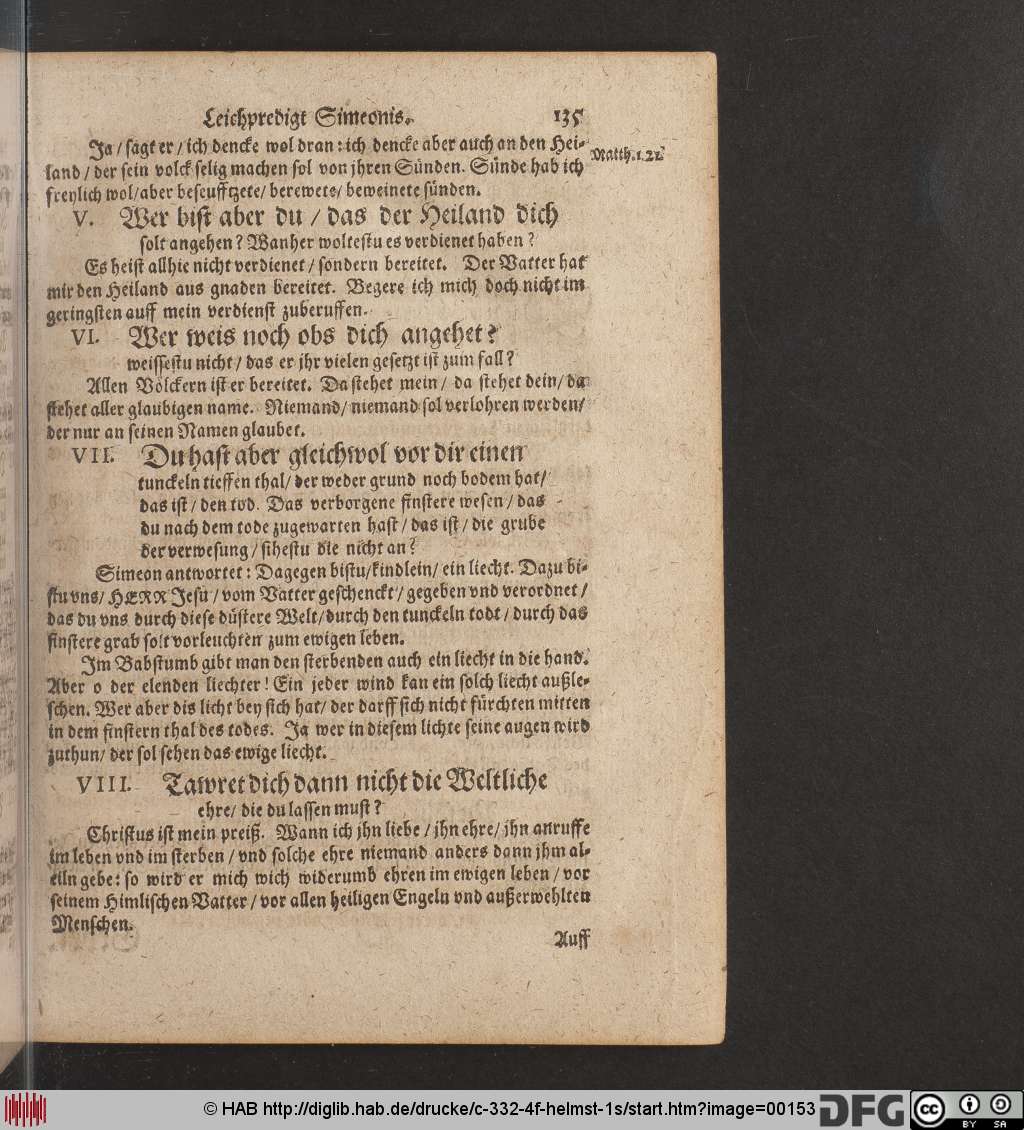 Leichpredigt Simeonis. 135
Ja / sagt er / ich dencke wol dran: ich dencke aber auch an den Hei- Matth. 1. 21.
land / der sein volck selig machen sol von jhren Sünden. Sünde hab ich
freylich wol / aber beseufftzete / berewete / beweinete sünden.
V. Wer bist aber du / das der Heiland dich
solt angehen? Wanher woltestu es verdienet haben?
Es heist allhie nicht verdienet / sondern bereitet. Der Vatter hat
mir den Heiland aus gnaden bereitet. Begere ich mich doch nicht im
geringsten auff mein verdienst zuberuffen.
VI. Wer weis noch obs dich angehet?
weissestu nicht / das er jhr vielen gesetzt ist zum fall?
Allen Völckern ist er bereitet. Da stehet mein / da stehet dein / da
stehet aller glaubigen name. Niemand / niemand sol verlohren werden /
der nur an seinen Namen glaubet.
VII. Du hast aber gleichwol vor dir einen
tunckeln tieffen thal / der weder grund noch bodem hat /
das ist / den tod. Das verborgene finstere wesen / das
du nach dem tode zugewarten hast / das ist / die grube
der verwesung / sihestu die nicht an?
Simeon antwortet: Dagegen bistu / kindlein / ein liecht. Dazu bi-
stu vns / HERR Jesu / vom Vatter geschenckt / gegeben vnd verordnet /
das du vns durch diese düstere Welt / durch den tunckeln todt / durch das
finstere grab solt vorleuchten zum ewigen leben.
Im Babstumb gibt man den sterbenden auch ein liecht in die hand.
Aber o der elenden liechter! Ein jeder wind kan ein solch liecht außle-
schen. Wer aber dis licht bey sich hat / der darff sich nicht fürchten mitten
in dem finstern thal des todes. Ja wer in diesem lichte seine augen wird
zuthun / der sol sehen das ewige liecht.
VIII. Tawret dich dann nicht die Weltliche
ehre / die du lassen must?
Christus ist mein preiß. Wann ich jhn liebe / jhn ehre / jhn anruffe
im leben vnd im sterben / vnd solche ehre niemand anders dann jhm al-
eiln gebe: so wird er mich wich widerumb ehren im ewigen leben / vor
seinem Himlischen Vatter / vor allen heiligen Engeln vnd außerwehlten
Menschen.
Auff
© HAB http://diglib.hab.de/drucke/c-332-4f-helmst-1s/start.htm?image=00153 DFG CC BY SA